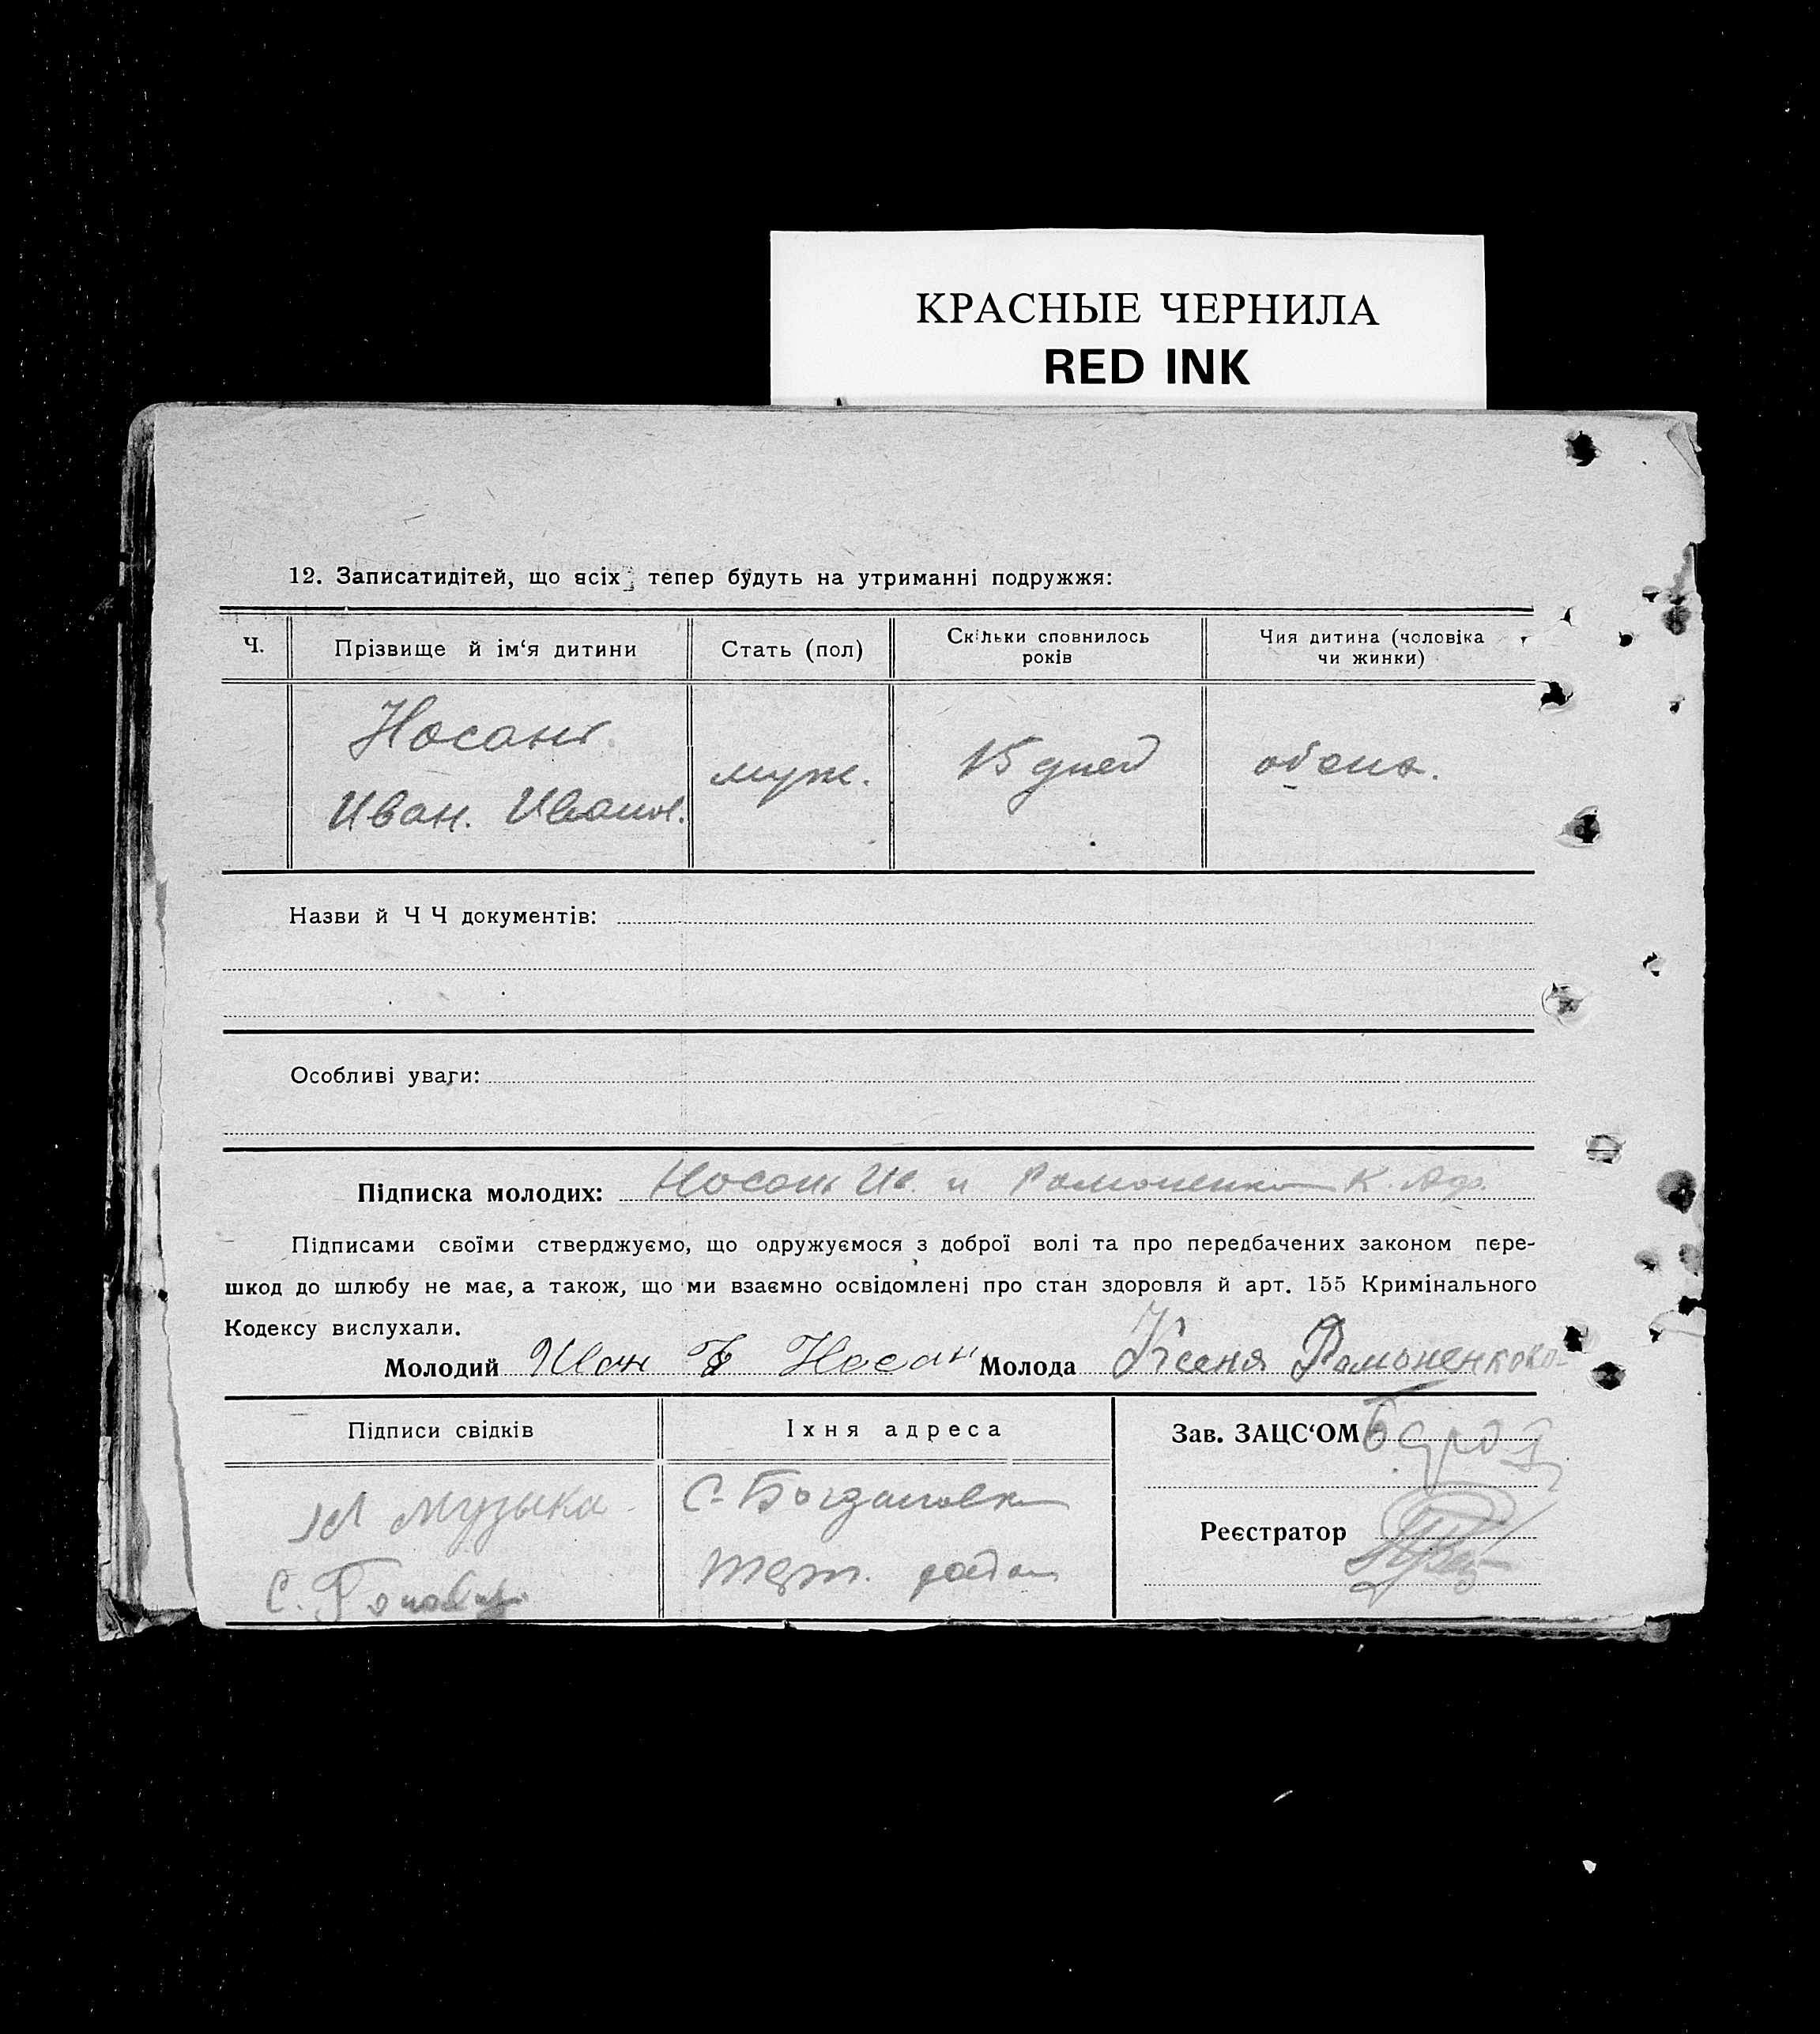 КРАСНЫЕ ЧЕРНИЛА
RED INK
12. Записатидітей, що всіх тепер будуть на утриманні подружжя:
Ч. Прізвище й ім‘я дитини Стать (пол) Скільки сповнилось років Чия дитина (чоловіка чи жинки)
Носань
Иван. Иванов. муж. 15 дней
Назви й Ч Ч документів:
Особливі уваги:
Підписка молодих: Носань Ив. и К.
Підписами своїми стверджуємо, що одружуємося з доброї волі та про передбачених законом пере-
шкод до шлюбу не має, а також, що ми взаємно освідомлені про стан здоровля й арт. 155 Кримінального
Кодексу вислухали.
Молодий Иван Носан Молода Ксеня
Підписи свідків Іхня адреса Зав. ЗАЦС‘ОМ
Музыка С. Богдановка
Реєстратор
С.